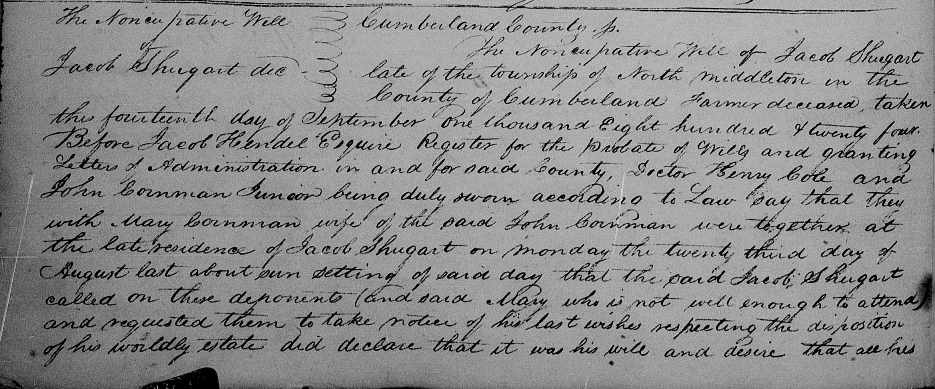 The Noncupative Will Cumberland County, ss.
The Noncupative Will of Jacob Shugart
Jacob Shugart dec late of the township of North middleton in the
County of Cumberland Farmer deceased, taken
this fourteenth day of September one thousand Eight hundred & twenty four.
Before Jacob Hendel Esquire Register for the Probate of Wills and granting
Letters of Administration in and for said County, Doctor Henry Cole and
John Cornman Junior being duly sworn according to Law say that they
with Mary Cornman wife of the said John Cornman were together at
the late residence of Jacob Shugart on monday the twenty third day of
August last about sun setting of said day that the said Jacob Shugart
called on these deponents (and said Mary who is not well enough to attend)
and requested them to take notice of his last wishes respecting the disposition
of his worldly estate did declare that it was his will and desire that all his